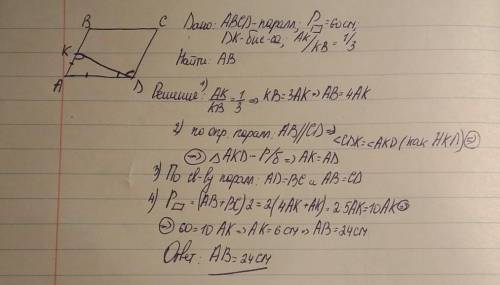 B C
K
A D
Дано: ABCD-парал.; P▱=60см;
DK-бис-са; AK/KB=1/3
Найти: AB
Решение: 1) AK/KB=1/3 ⇒ KB=3AK ⇒ AB=4AK
2) по опр. парал: AB//CD ⇒ <CDK=<AKD (как НКЛ) ⇒
⇒ △AKD-р/б ⇒ AK=AD
3) По св-ву парал: AD=BC и AB=CD
4) P▱=(AB+BC)2=2(4AK+AK)=2·5AK=10AK ⇒
⇒ 60=10AK ⇒ AK=6см ⇒ AB=24см
Ответ: AB=24см